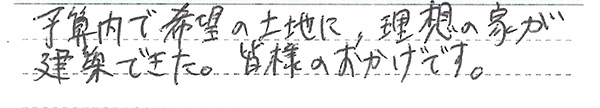 予算内で希望の土地に，理想の家が
建築できた。皆様のおかげです。